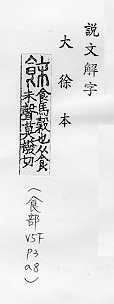 說文解字
大徐本
䬴食馬穀也从食
末聲莫撥切
（食部 V5下 P3 a8）